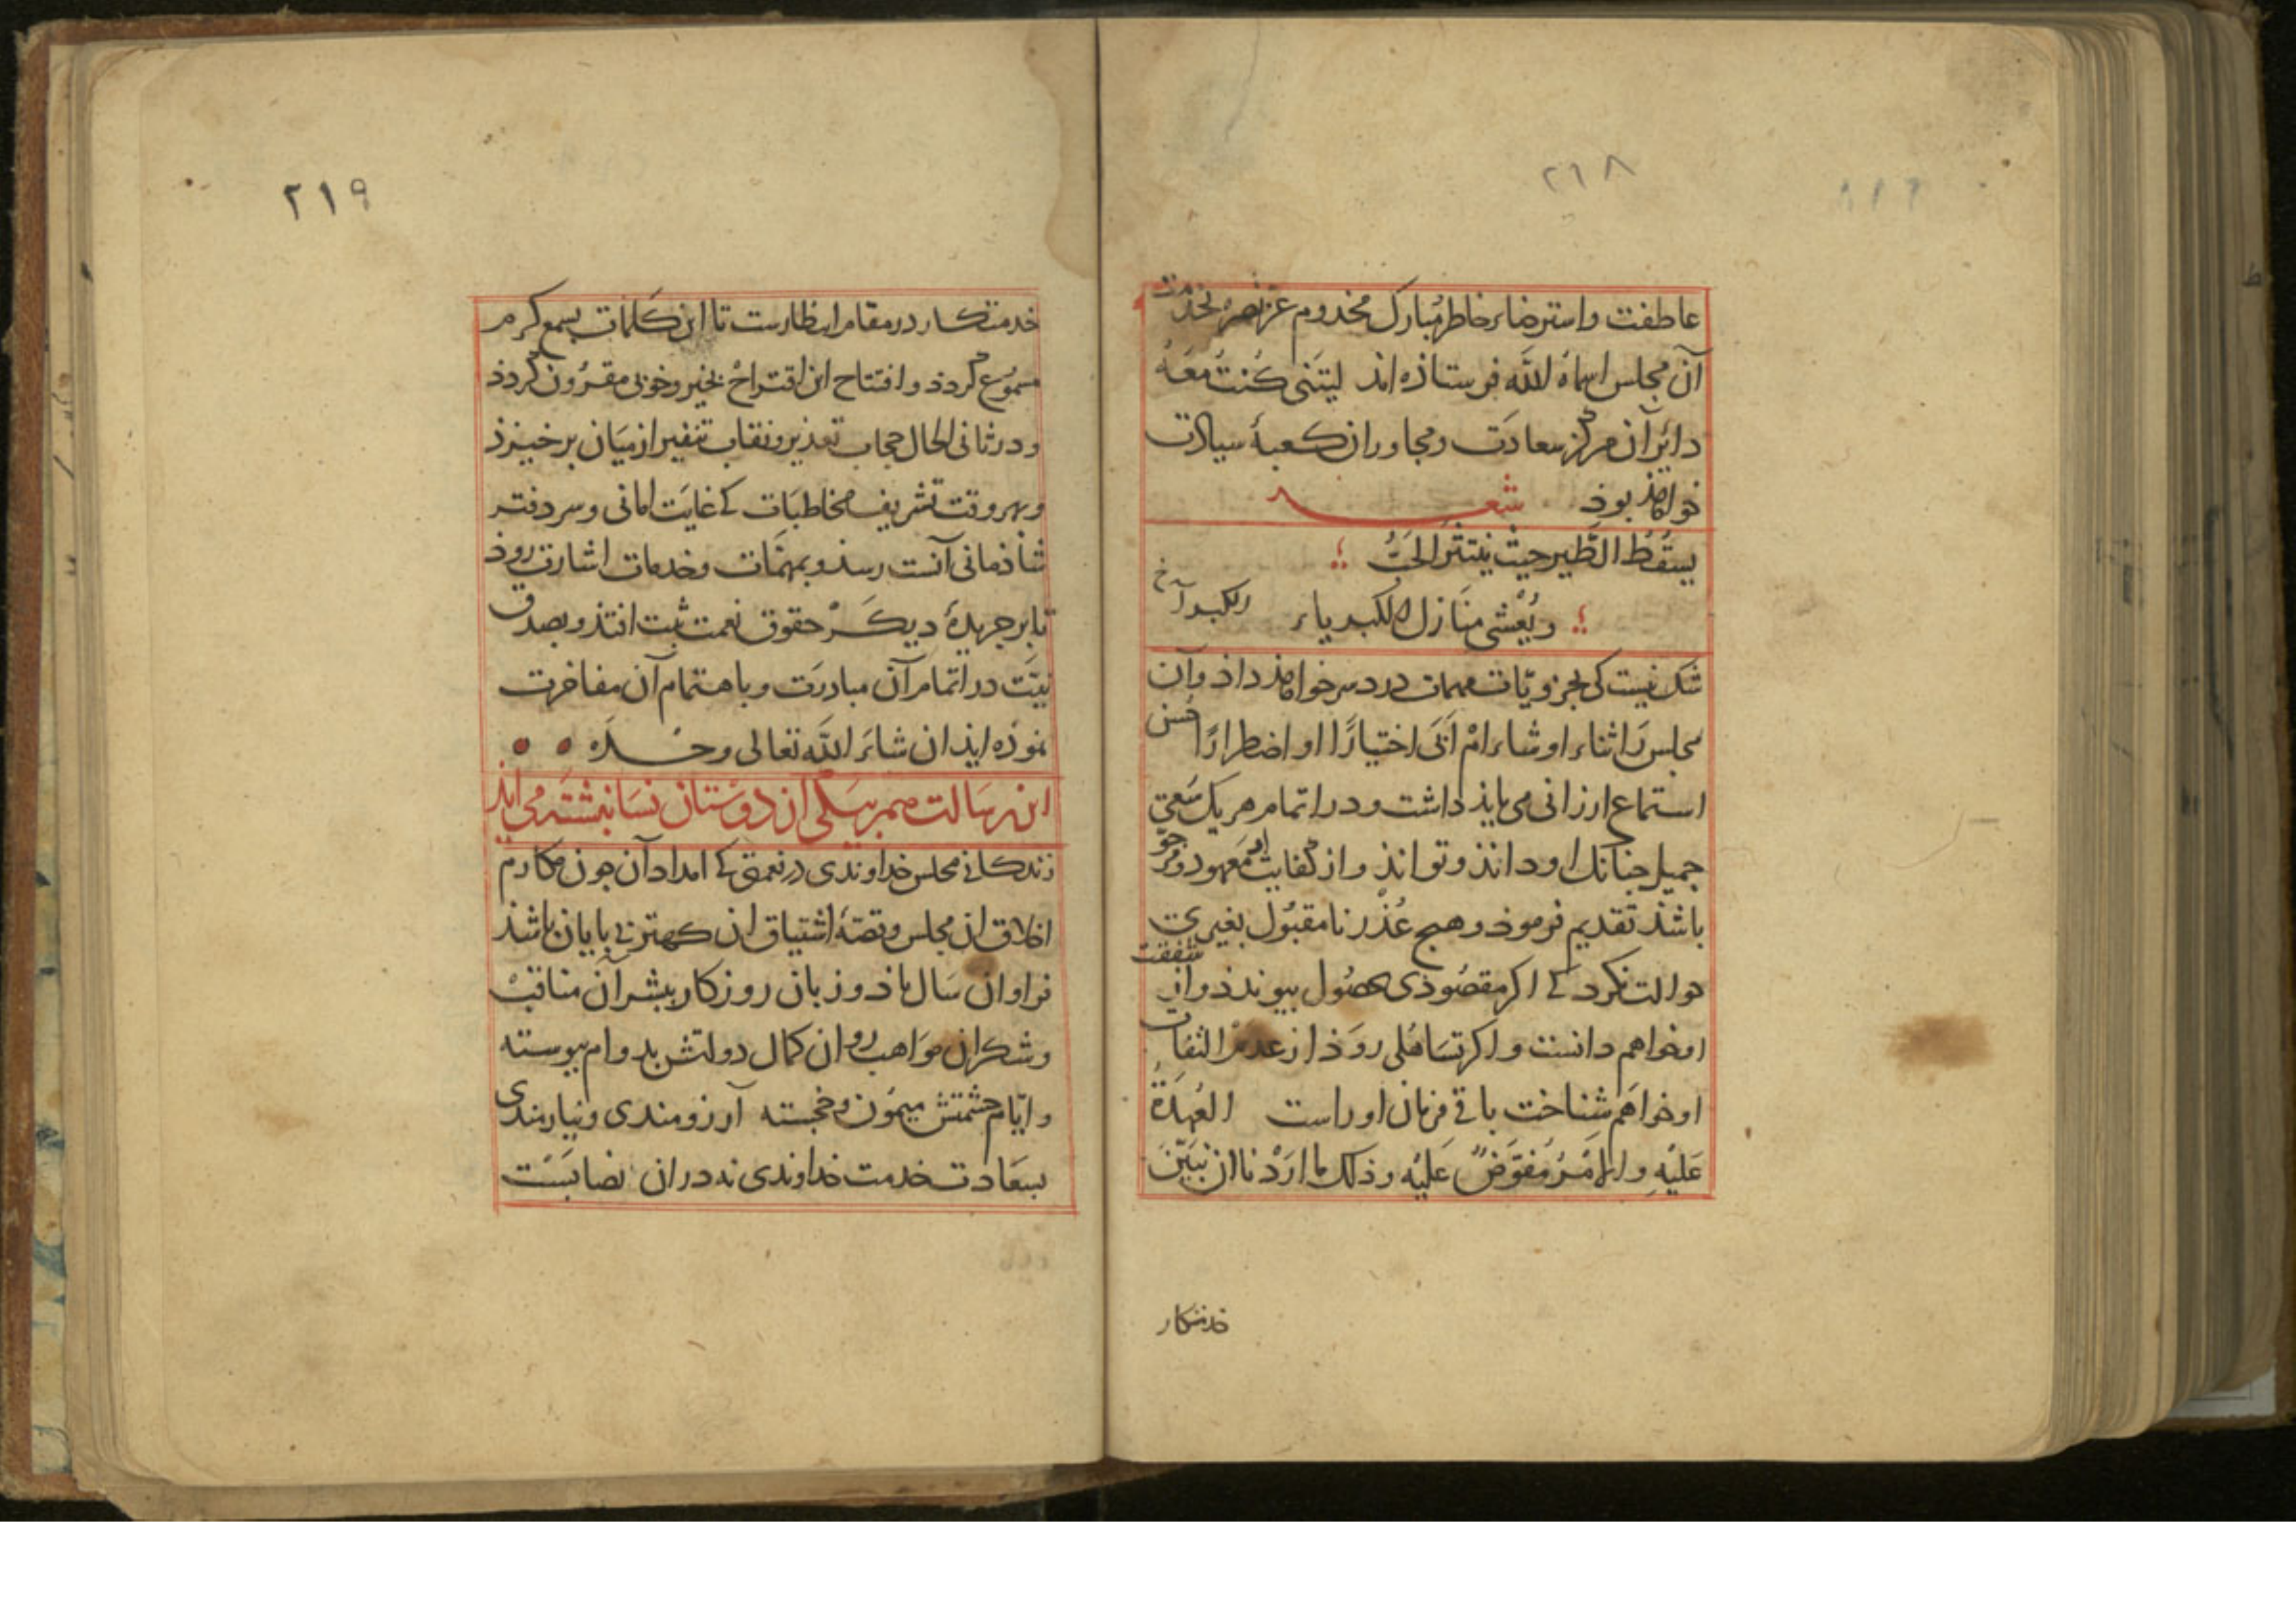 ٢١٨
عاطفت و استرضاء خاطر مبارک مخدوم عز نصره بخدمت
آن مجلس اسماه الله فرستاذه اند لیتنی کنت معه
دایر آن مرکز سعادت و مجاوران کعبۀ سیادت
خواهذ بوذ شعر
یسقط الطیر حیث ینتثر الحب
و یغشی منازل الکبریاء الکبرا خ
شک نیست کی بجزویات مهمات دردسر خواهذ داذ و آن
مجلس را شاء او شاء ام ابی اختیارًا او اضطرارًا حسن
استماع ارزانی می بایذ داشت و در اتمام هر یک سعی
جمیل جنانک او دانذ و توانذ و از کفایت معهود و مرجو
باشذ تقدیم فرموذ و هیج عذر نامقبول بغیری
حوالت نکرد کی اکر مقصوذی بحصول بیوندذ و از شفقت
او خواهم دانست و اکر تساهلی روذ از عدم التفات
او خواهم شناخت باقی فرمان او راست العهدة
علیه و الامر مفوض علیه و ذلک ما اردنا ان نبین
خدمتکار
٢١٩
خدمتکار در مقام انتظارست تا این کلمات بسمع کرم
مسموع کردذ و افتتاح این اقتراح بخیر و خوبی مقرون کردذ
و در ثانی الحال حجاب تعذیر و نقاب تنفیر از میان برخیزذ
و بهر وقت تشریف مخاطبات کی غایت امانی و سر دفتر
شاذمانی آنست رسذ و بمهمات و خدمات اشارت روذ
تا بر جریدۀ دیکر حقوق نعمت ثبت افتذ و بصدق
نیت در اتمام آن مبادرت و باهتمام آن مفاخرت
نموذه ایذ ان شاء الله تعالی وحده
این رسالت هم بر یکی از دوستان نسا نبشته می ایذ
زندکانی مجلس خداوندی در نعمتی کی امداد آن جون مکارم
اخلاق ان مجلس و قصۀ اشتیاق ان کهتر بی بایان باشذ
فراوان سال باذ و زبان روزکار بنشر آن مناقب
و شکر ان مواهب روان کمال دولتش بدوام بیوسته
و ایام حشمتش میمون و خجسته آرزومندی و نیازمندی
بسعادت خدمت خداوندی نه دران نصابست